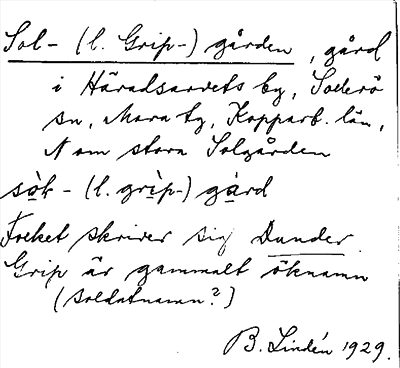 Sol- (l. Grip-) gården, gård
i Häradsarvets by, Sollerö
sn, Mora tg, Kopparb. län,
N om stora Solgården
sò̀k- (l. grìp-) gàrd
Folket skriver sig Dunder.
Grip är gammalt öknamn
(soldatnamn?)
B. Lindén 1929.